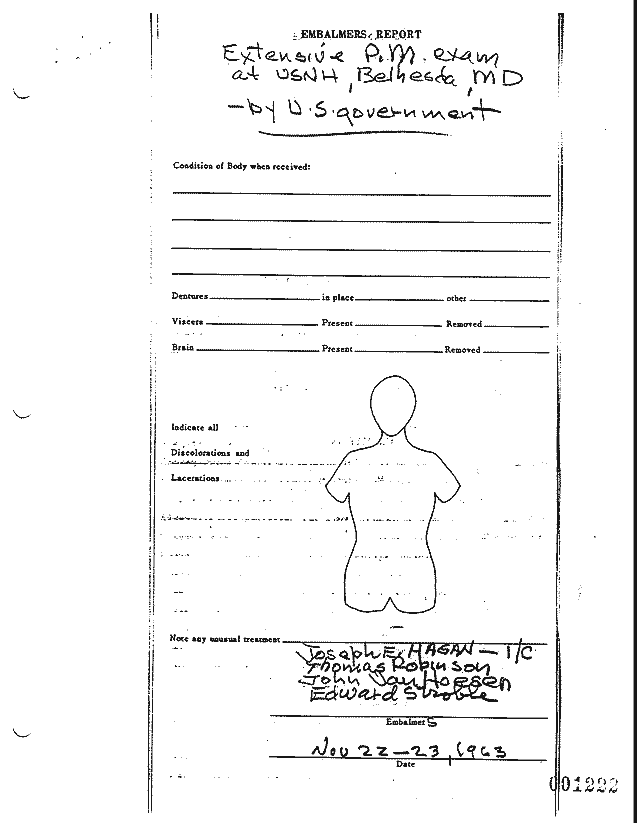 EMBALMERS REPORT
Extensive P.M. exam
at USNH, Bethesda, MD
-by U.S. government
Condition of Body when received:
Dentures in place other
Viscera Present Removed
Brain Present Removed
Indicate all
Discolorations and
Lacerations
Note any unusual treatment
Joseph E. HAGAN - I/C
Thomas Robinson
John VanHoesen
Edward Stroble
Embalmers
Nov 22-23, 1963
Date
001222